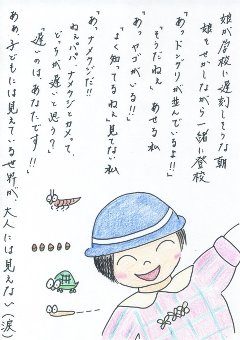 娘が登校に遅刻しそうな朝
娘をせかしながら一緒に登校
「あっドングリが並んでいるよ!!」
「そうだねぇ」あせる私
「あっヤゴがいる!!」
「よく知ってるねぇ」見てない私
「あっナメクジだ!!
ねぇパパ、ナメクジとカメって、
どちらが遅いと思う?」
「遅いのはあなたです!!」
ああ子どもには見えている世界が、大人には見えない(涙)